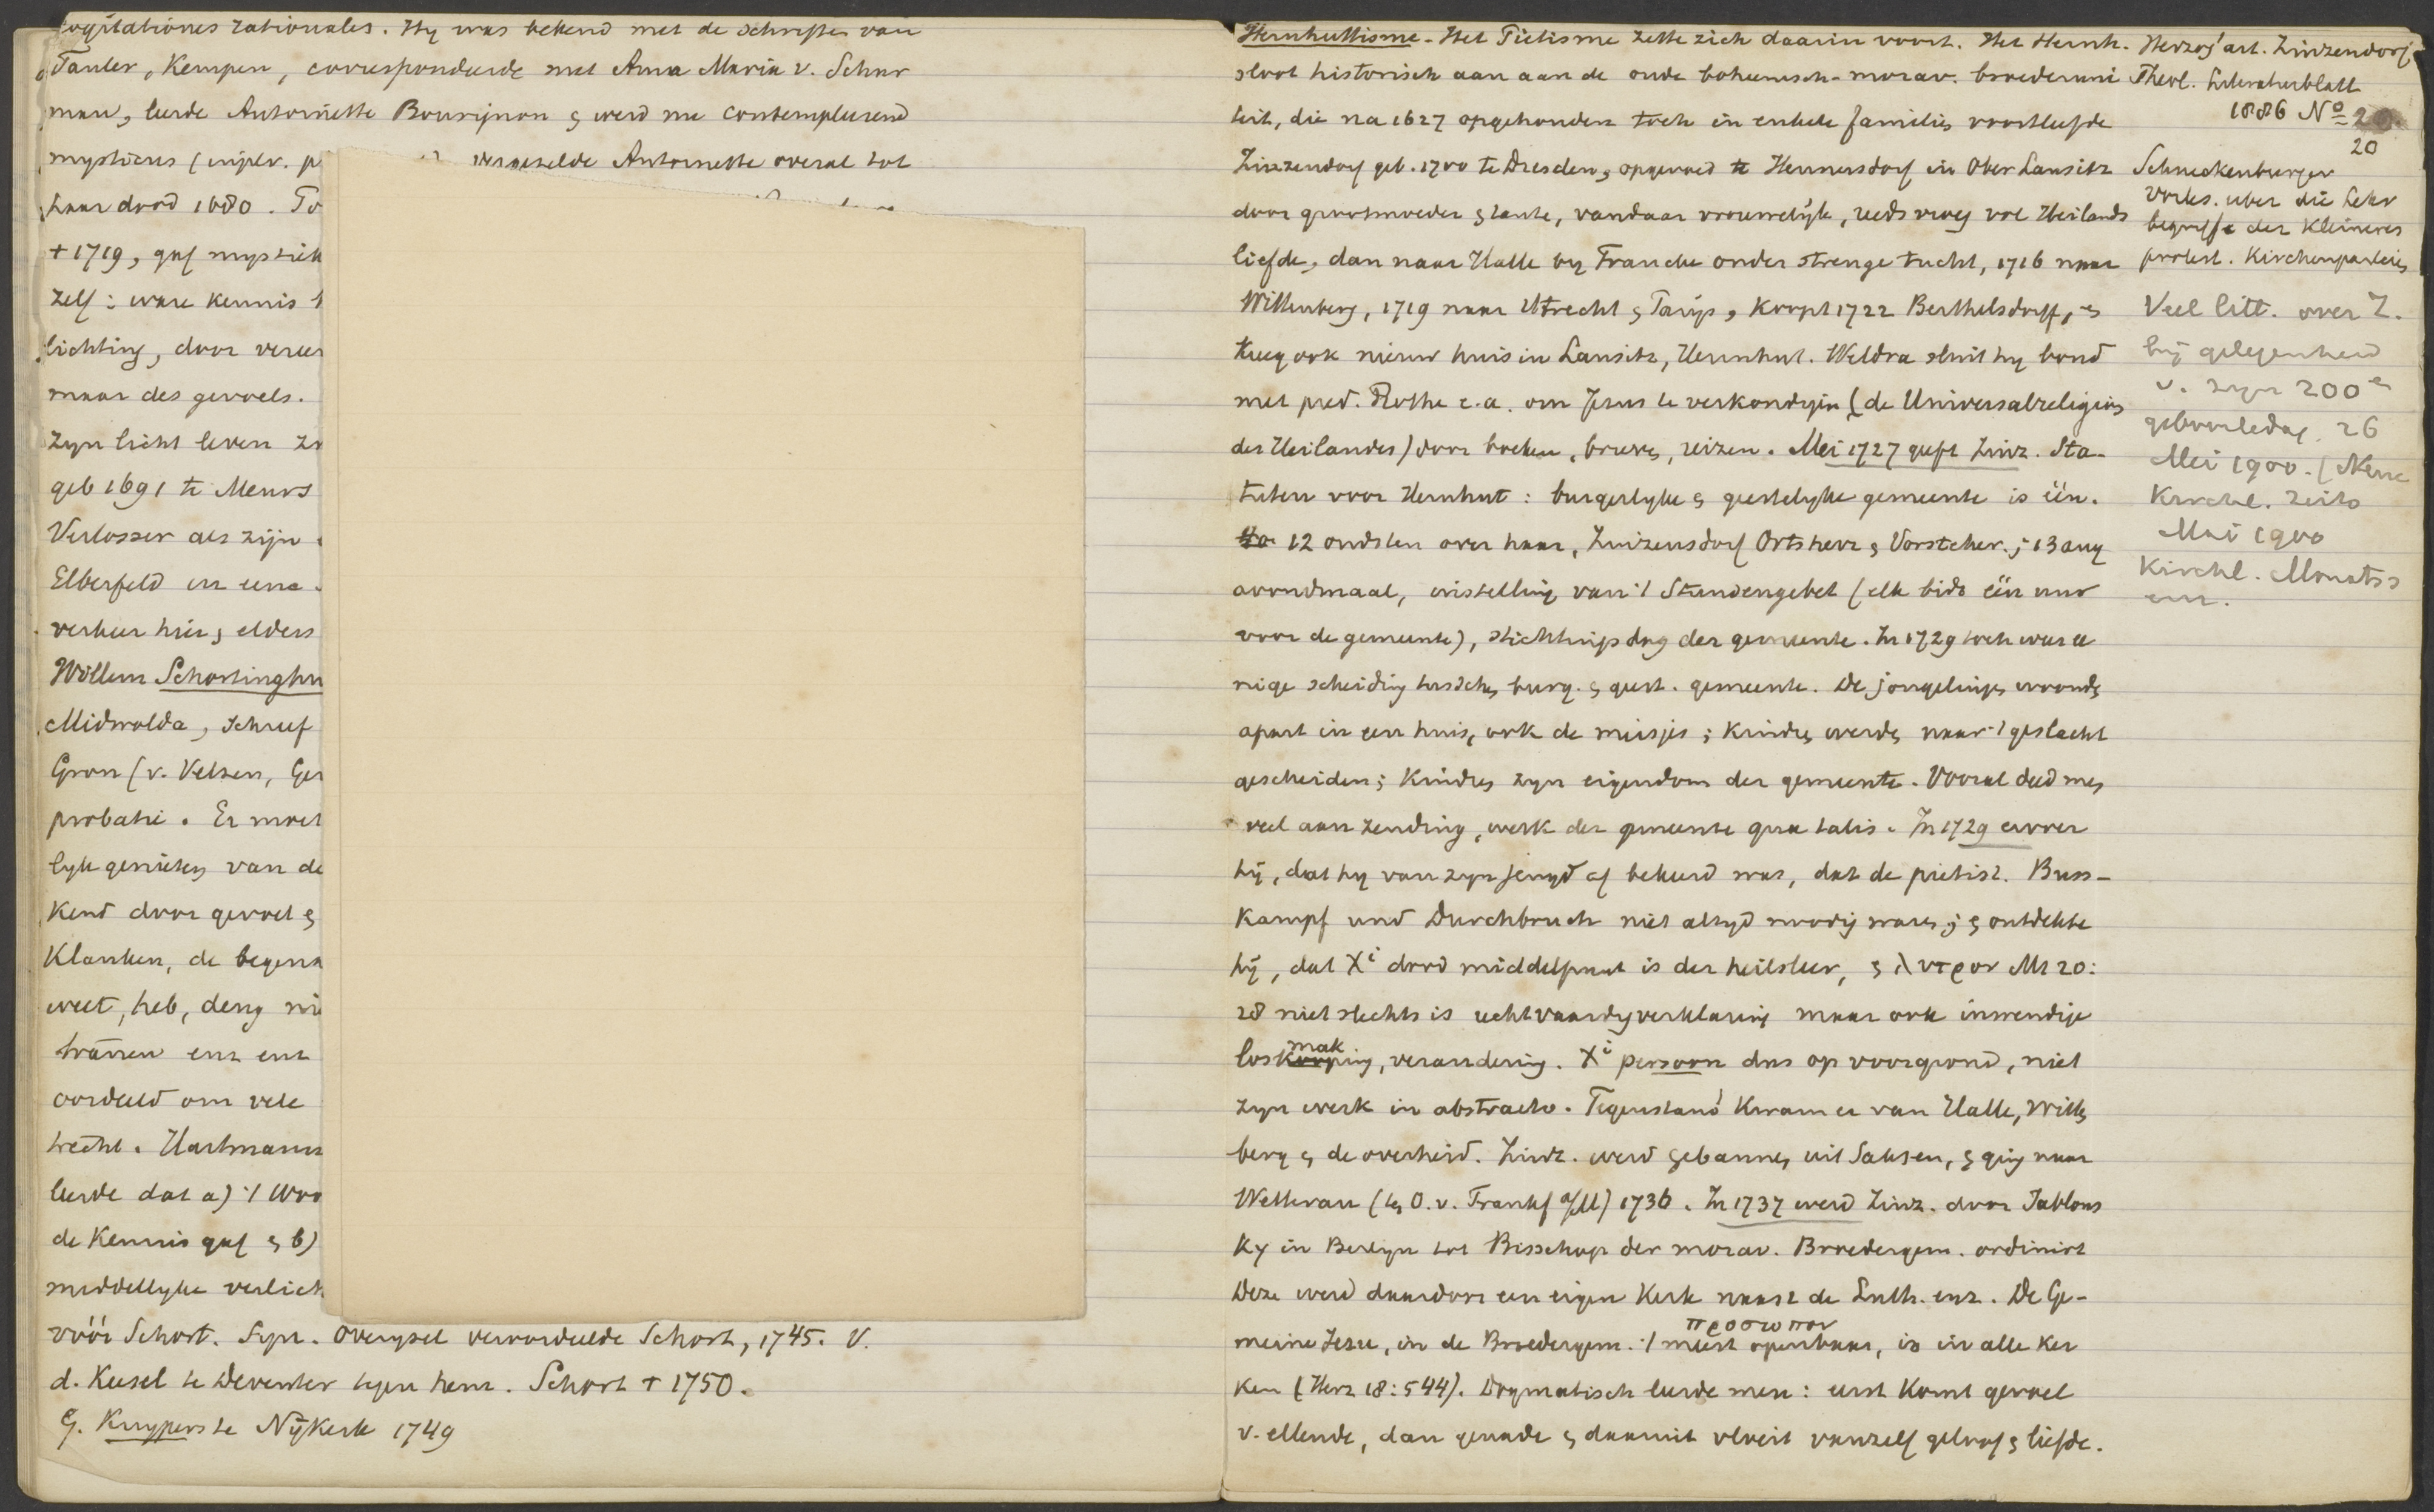 cogitationes rationales. Hy was bekend met de schriften van
Tauler, Kempen, correspondeerde met Anna Maria v. Schur
man, leerde Antoinette Bourignon & werd nu contemplerend
mysticus vergezelde Antoinette overal tot
haar dood 1680. To
† 1719, gaf mystiek
zelf: ware kennis
lichting, door
maar des gevoels.
zyn licht leven
geb 1691 te Meurs
Verlosser als zijn
Elberfeld en
verkeer hier & elders
Willem Schortinghu
Midwolda, schreef
Gron (v. Velzen, Ger
probatie. Er moet
lyk genieten van de
Kend door gevoel &
Klanken, de
weet, heb, deug ni
tranen enz enz
oordeeld om vele
trecht. Hartmann
leerde dat a) 't Woo
de Kennis gaf & b)
middellyke verlich
vóór Schort. Syn. Overysel veroordeelde Schort, 1745. V.
d. Keesel te Deventer tegen hem. Schort † 1750.
G. Kuypers te Nijkerk 1749
Hernhuttisme. Het Pietisme zette zich daarin voort. Het Hernh.
sloot historisch aan aan de oude boheemsch-morav. broederuni
teit, die na 1627 opgehouden toch in enkele families voortleefde
Zinzendorf geb. 1700 te Dresden, opgevoed te Hennersdorf in Ober Lausitz
door grootmoeder & tante, vandaar vrouwelyk, reeds vroeg vol Heilands
liefde, dan naar Halle by Francke onder strenge tucht, 1716 naar
Wittenberg, 1719 naar Utrecht & Parijs, koopt 1722 Berthelsdorff, &
kreeg ook nieuw huis in Lausitz, Hernhut. Weldra sluit hy bond
met pred. Rothe e.a. om Jezus te verkondigen (de Universalreligion
des Heilandes) door boeken, brieven, reizen. Mei 1727 geeft Zinz. Sta-
tuten voor Hernhut: burgerlyke & geestelyke gemeente is één.
12 oudsten over haar, Zinzensdorf Ortsherr & Vorsteher; 13 aug
avondmaal, instelling van 't Stundengebet (elk bidt één uur
voor de gemeente), stichtingsdag der gemeente. In 1729 toch weer ee
nige scheiding tusschen burg. & geest. gemeente. De jongelingen woonden
apart in een huis, ook de meisjes; kinders werden naar 't geslacht
gescheiden; kinders zyn eigendom der gemeente. Vooral deed men
veel aan zending, werk der gemeente qua talis. In 1729 ervoer
hij, dat hy van zyn jeugd af bekeerd was, dat de pietist. Buss-
kampf und Durchbruch niet altyd noodig waren; & ontdekte
hij, dat Xi dood middelpunt is der heilsleer, & λυτρον Mt 20:
28 niet slechts is rechtvaardigverklaring maar ook inwendige
losmaking, verandering. Xi persoon dus op voorgrond, niet
zyn werk in abstracto. Tegenstand kwam er van Halle, Witten
berg & de overheid. Zinz. werd gebannen uit Saksen, & ging naar
Wetterau (ten O. v. Frankf a/M) 1736. In 1737 werd Zinz. door Jablons
ky in Berlyn tot Bisschop der morav. Broedergem. ordinirt
Deze werd daardoor een eigen Kerk naast de Luth. enz. De Ge-
προσωπον
meine Jesu, in de Broedergem. 't meest openbaar, is in alle ker
ken (Herz 18:544). Dogmatisch leerde men: eerst komt gevoel
v. ellende, dan genade & daaruit vloeit vanzelf geloof & liefde.
Herzog' art. Zinzendorf
Theol. Literaturblatt
1886 No 20
20
Schneckenburger
Vorles. uber die Lehr
begriffe der Kleineren
protest. Kirchenparteien
Veel litt. over Z.
bij gelegenheid
v. zyn 200e
geboortedag. 26
Mei 1900. (Neue
Kirchl. Zeits
Mai 1900
Kirchl. Monatss
enz.